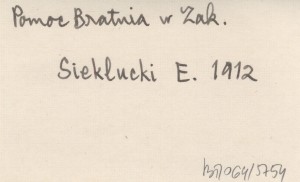 Pomoc Bratnia w Zak.
Siekłucki E. 1912